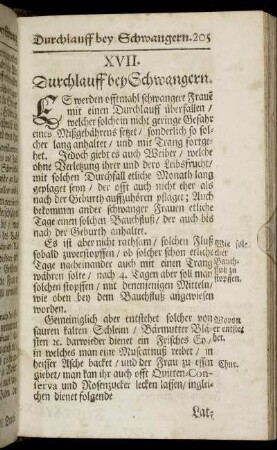 Durchlauff bey Schwangern. 205
XVII.
Durchlauff bey Schwangern.
ES werden offtmahl schwangere Frauē
mit einen Durchlauff überfallen /
welcher solche in nicht geringe Gefahr
eines Mißgebährens setzet / sonderlich so sol-
cher lang anhaltet / und mit Trang fortge-
het. Jedoch giebt es auch Weiber / welche
ohne Verletzung ihrer und dero Leibsfrucht /
mit solchen Durchfall etliche Monath lang
geplaget seyn / der offt auch nicht eher als
nach der Geburth auffzuhören pfleget; Auch
bekommen ander schwanger Frauen etliche
Tage einen solchen Bauchfluß / der auch bis
nach der Geburth anhaltet.
Es ist aber nicht rathsam / solchen Fluß
sobald zuverstopffen / ob solcher schon etliche
Tage nacheinander auch mit einen Trang
währen solte / nach 4. Tagen aber soll man
solchen stopffen / mit denenjenigen Mitteln /
wie oben bey dem Bauchfluß angewiesen
worden.
Wie sol-
cher
Bauch-
fluß zu
stopffen.
Gemeiniglich aber entstehet solcher von
sauren kalten Schleim / Bärmutter Blä-
sten ꝛc. darwieder dienet ein Frisches Ey /
in welches man eine Muscatnuß reibet / in
heisser Asche backet / und der Frau zu essen
giebet / man kan ihr auch offt Quitten-Con-
serva und Rosenzucker lecken lassen / inglei-
chen dienet folgende
Wovon
er entste-
het.
Chur.
Lat-